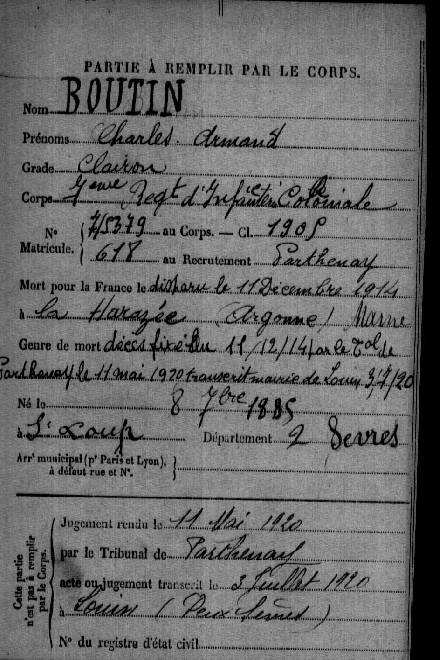 PARTIE À REMPLIR PAR LE CORPS.
Nom BOUTIN
Prénoms Charles Armand
Grade Clairon
Corps 7eme Regt d'Infanterie Coloniale
N° 7/5379 au Corps. — Cl. 1905
Matricule. 618 au Recrutement Parthenay
Mort pour la France le disparu le 11 Décembre 1914
à la Harazée (Argonne) Marne
Genre de mort décès fixé au 11/12/14 par le Tal de
Parthenay le 11 mai 1920 transcrit mairie de Louin 3/7/20
Né le 8 7bre 1885
à St Loup Département 2 Sevres
Arrt municipal (pr Paris et Lyon),
à défaut rue et N°.
Cette partie
n'est pas à remplir
par le Corps.
Jugement rendu le 11 Mai 1920
par le Tribunal de Parthenay
acte ou jugement transcrit le 3 Juillet 1920
à Louin (Deux Sèvres)
N° du registre d'état civil